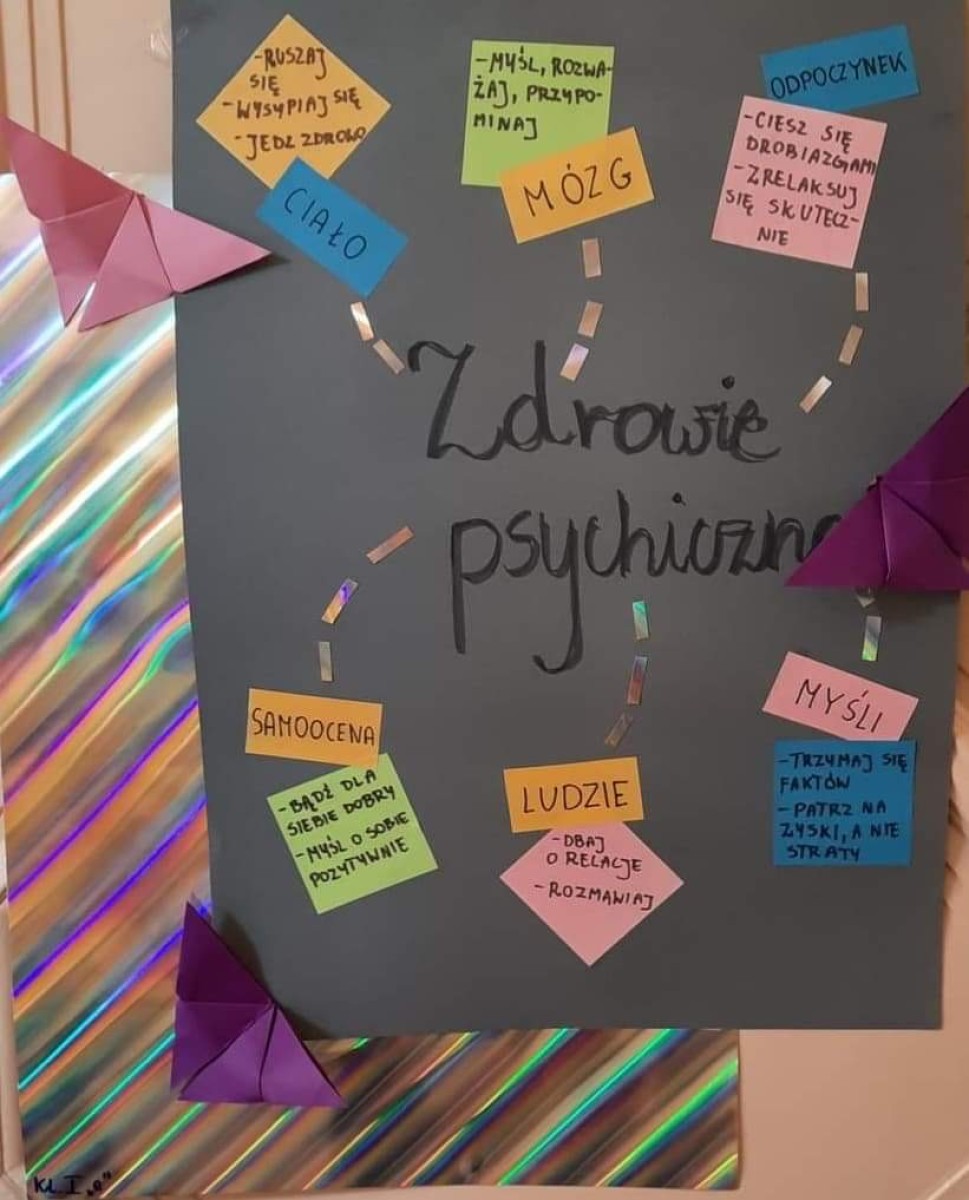 -RUSZAJ
SIĘ
-WYSYPIAJ SIĘ
-JEDZ ZDROWO
CIAŁO
-MYŚL, ROZWA-
ŻAJ, PRZYPO-
MINAJ
MÓZG
ODPOCZYNEK
-CIESZ SIĘ
DROBIAZGAMI
-ZRELAKSUJ
SIĘ SKUTECZ-
NIE
Zdrowie
psychiczne
SAMOOCENA
-BĄDŹ DLA
SIEBIE DOBRY
-MYŚL O SOBIE
POZYTYWNIE
LUDZIE
-DBAJ
O RELACJE
-ROZMAWIAJ
MYŚLI
-TRZYMAJ SIĘ
FAKTÓW
-PATRZ NA
ZYSKI, A NIE
STRATY
KL. I